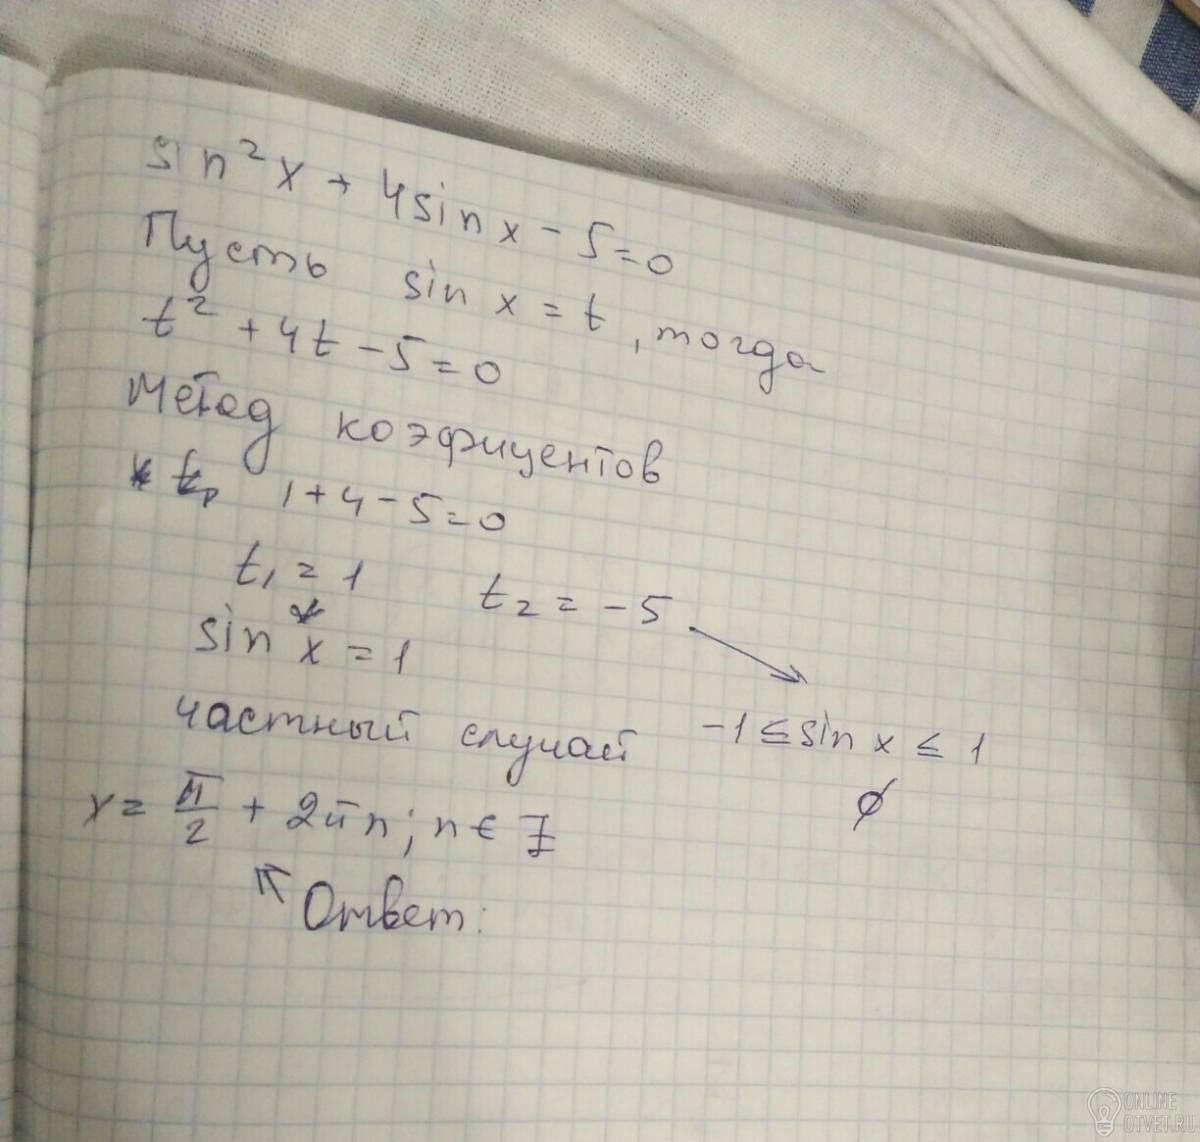 sin²x + 4sin x - 5 = 0
Пусть sin x = t, тогда
t² + 4t - 5 = 0
Метод коэфицентов
1 + 4 - 5 = 0
t₁ = 1 t₂ = -5
sin x = 1
частный случай -1 ≤ sin x ≤ 1
x = π/2 + 2πn; n ∈ Z ∅
Ответ:
ONLINE
OTVET.RU